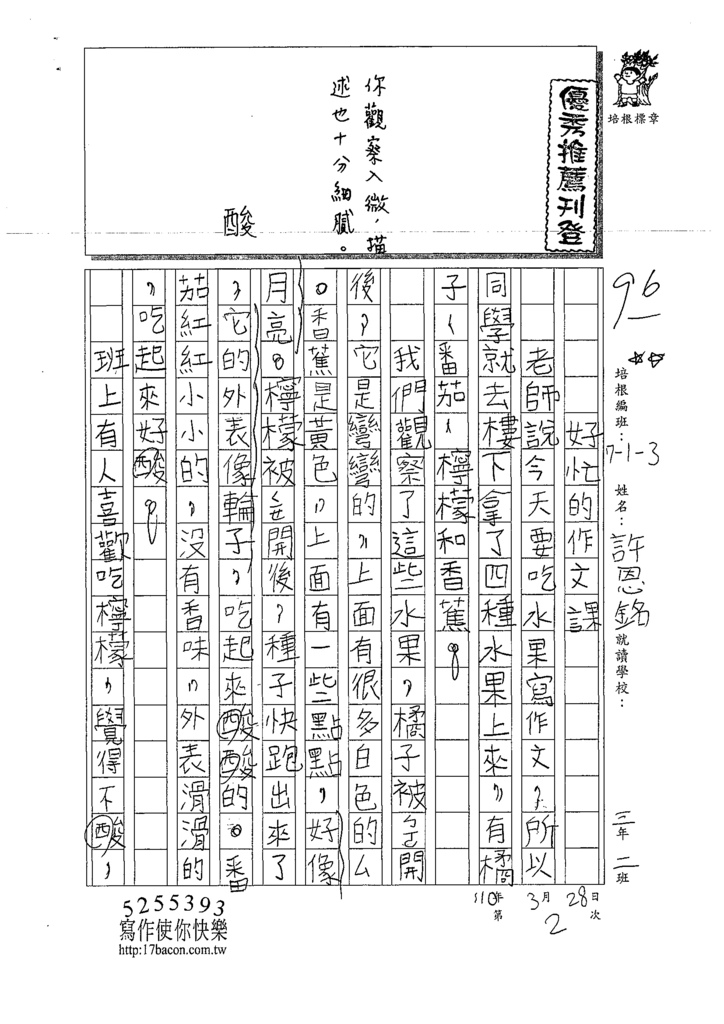 培根標章
優秀推薦刊登
你觀察入微，描
述也十分細膩。
酸
96
培根編班：7-1-3 姓名：許恩銘 就讀學校： 三年二班
110年3月28日
第2次
好忙的作文課
老師說今天要吃水果寫作文，所以
同學就去樓下拿了四種水果上來，有橘
子、番茄、檸檬和香蕉。
我們觀察了這些水果，橘子被ㄅㄛ開
後，它是彎彎的，上面有很多白色的ㄙ
。香蕉是黃色，上面有一些點點，好像
月亮。檸檬被ㄑㄝ開後，種子快跑出來了
，它的外表像輪子，吃起來酸酸的。番
茄紅紅小小的，沒有香味，外表滑滑的
，吃起來好酸。
班上有人喜歡吃檸檬，覺得不酸，
5255393
寫作使你快樂
http:17bacon.com.tw